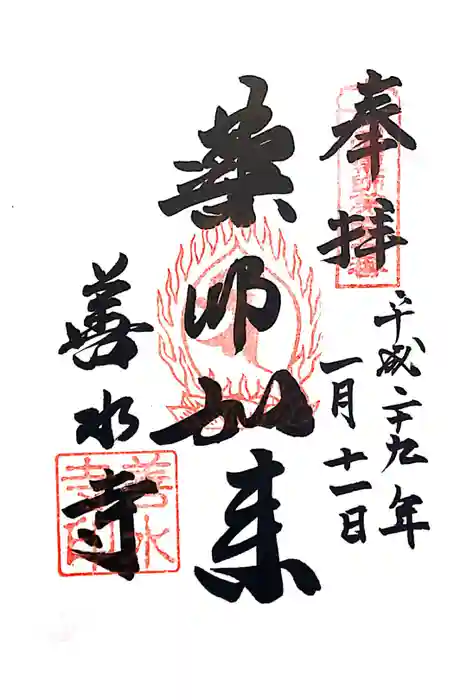 奉拝
平成二十九年
一月十一日
薬師如来
善水寺
善水
寺印